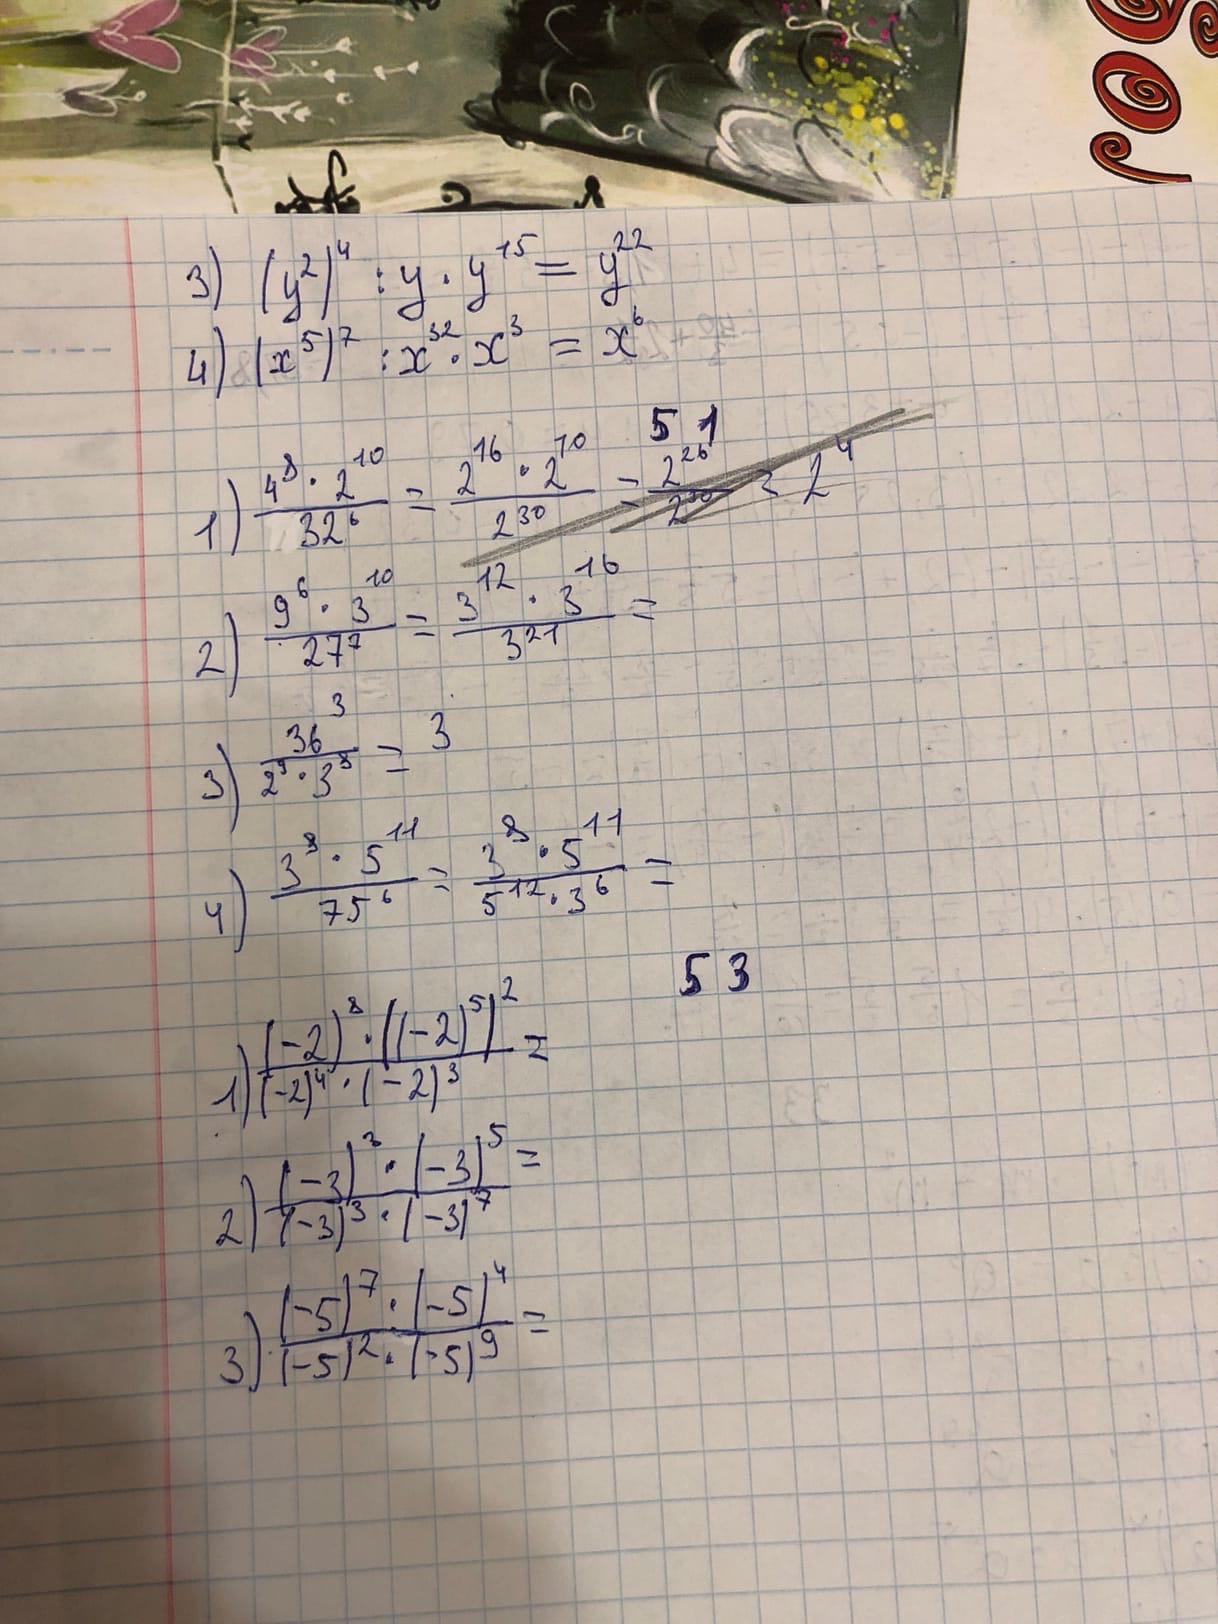 3) (y²)⁴ : y · y¹⁵ = y²²
4) (x⁵)⁷ : x³² · x³ = x⁶
51
1) 4⁸ · 2¹⁰ / 32⁶ = 2¹⁶ · 2¹⁰ / 2³⁰ = 2²⁶ / 2³⁰ = 2⁴
2) 9⁶ · 3¹⁰ / 27⁷ = 3¹² · 3¹⁶ / 3²¹ =
3) 36³ / 2⁹ · 3⁸ = 3
4) 3⁸ · 5¹¹ / 75⁶ = 3⁸ · 5¹¹ / 5¹² · 3⁶ =
53
1) (-2)⁸ · ((-2)⁵)² / (-2)⁴ · (-2)³ =
2) (-3)³ · (-3)⁵ / (-3)³ · (-3)⁷ =
3) (-5)⁷ · (-5)⁴ / (-5)² · (-5)⁹ =